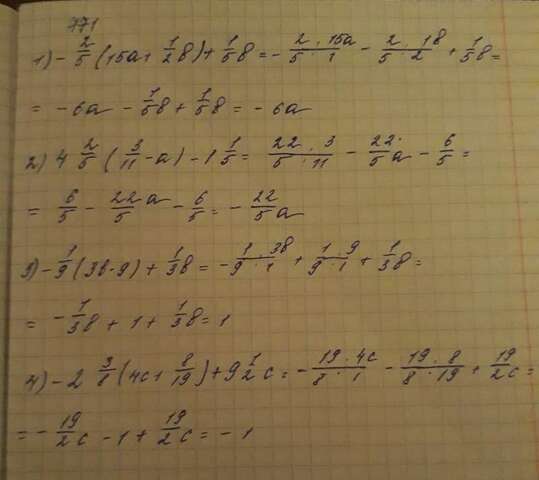 771
1) - 2/5 (15a + 1/2 в) + 1/5 в = - 2·15a/5·1 - 2·1в/5·2 + 1/5 в =
= - 6a - 1/5 в + 1/5 в = - 6a
2) 4 2/5 (3/11 - a) - 1 1/5 = 22·3/5·11 - 22/5 a - 6/5 =
= 6/5 - 22/5 a - 6/5 = - 22/5 a
3) - 1/9 (3в - 9) + 1/3 в = - 1·3в/9·1 + 1·9/9·1 + 1/3 в =
= - 1/3 в + 1 + 1/3 в = 1
4) - 2 3/8 (4c + 8/19) + 9 1/2 c = - 19·4c/8·1 - 19·8/8·19 + 19/2 c =
= - 19/2 c - 1 + 19/2 c = - 1